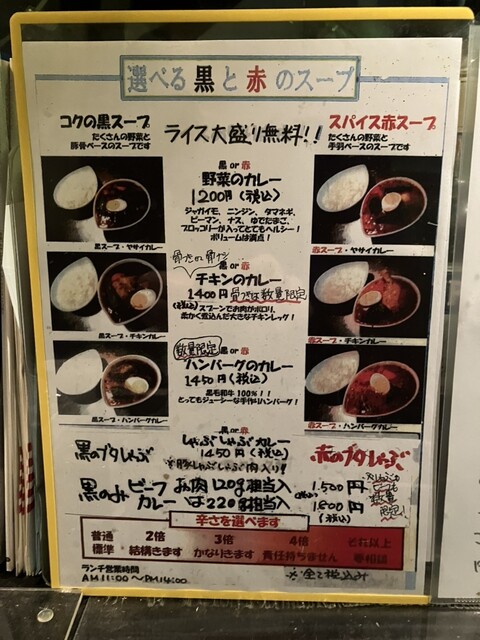 選べる黒と赤のスープ
コクの黒スープ
たくさんの野菜と
豚骨ベースのスープです
ライス大盛り無料!!
スパイス赤スープ
たくさんの野菜と
手羽ベースのスープです
黒 or 赤
野菜のカレー
1200円(税込)
ジャガイモ、ニンジン、タマネギ、
ピーマン、ナス、ゆでたまご、
ブロッコリーが入ってとてもヘルシー!
ボリュームは満点!
黒スープ・ヤサイカレー
赤スープ・ヤサイカレー
黒 or 赤
チキンのカレー
1400円 骨つきは数量限定
(税込)
スプーンでお肉がホロリ、
柔かく煮込んだ大きなチキンレッグ!
黒スープ・チキンカレー
赤スープ・チキンカレー
数量限定
黒 or 赤
ハンバーグのカレー
1450円(税込)
黒毛和牛 100%!!
とってもジューシーな手作りハンバーグ!
黒スープ・ハンバーグカレー
赤スープ・ハンバーグカレー
黒 or 赤
黒のブタしゃぶ
しゃぶしゃぶカレー
1450円(税込)
※豚しゃぶしゃぶ肉入り!
赤のブタしゃぶ
黒のみビーフカレー
お肉120g相当入
1.500円
(税込)
は220g相当入
1.800円
(税込)
辛さを選べます
普通 2倍 3倍 4倍 それ以上
標準 結構きます かなりきます 責任持ちません 要相談
ランチ営業時間
AM11:00〜PM14:00
※全て税込み